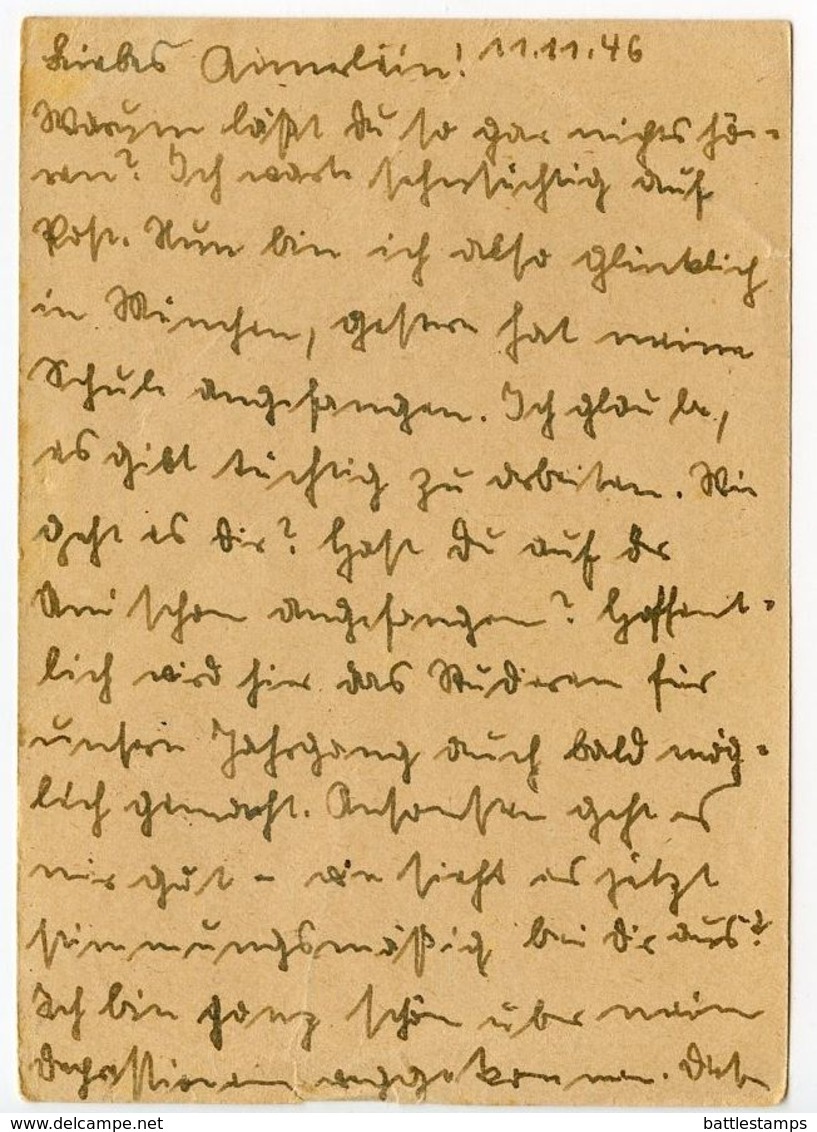 Liebes Annerlein! 11.11.46
Warum läßt Du so gar nichts hö-
ren? Ich warte sehnsüchtig auf
Post. Nun bin ich also glücklich
in München, gestern hat meine
Schule angefangen. Ich glaube,
es gibt tüchtig zu arbeiten. Wie
geht es Dir? Hast Du auf der
Uni schon angefangen? Hoffent-
lich wird hier das Studieren für
unsern Jahrgang auch bald mög-
lich gemacht. Ansonsten geht es
mir gut – wie sieht es jetzt
stimmungsmäßig bei Dir aus?
Ich bin ganz schön über meine
Depressionen weggekommen.
delcampe.net
battlestamps